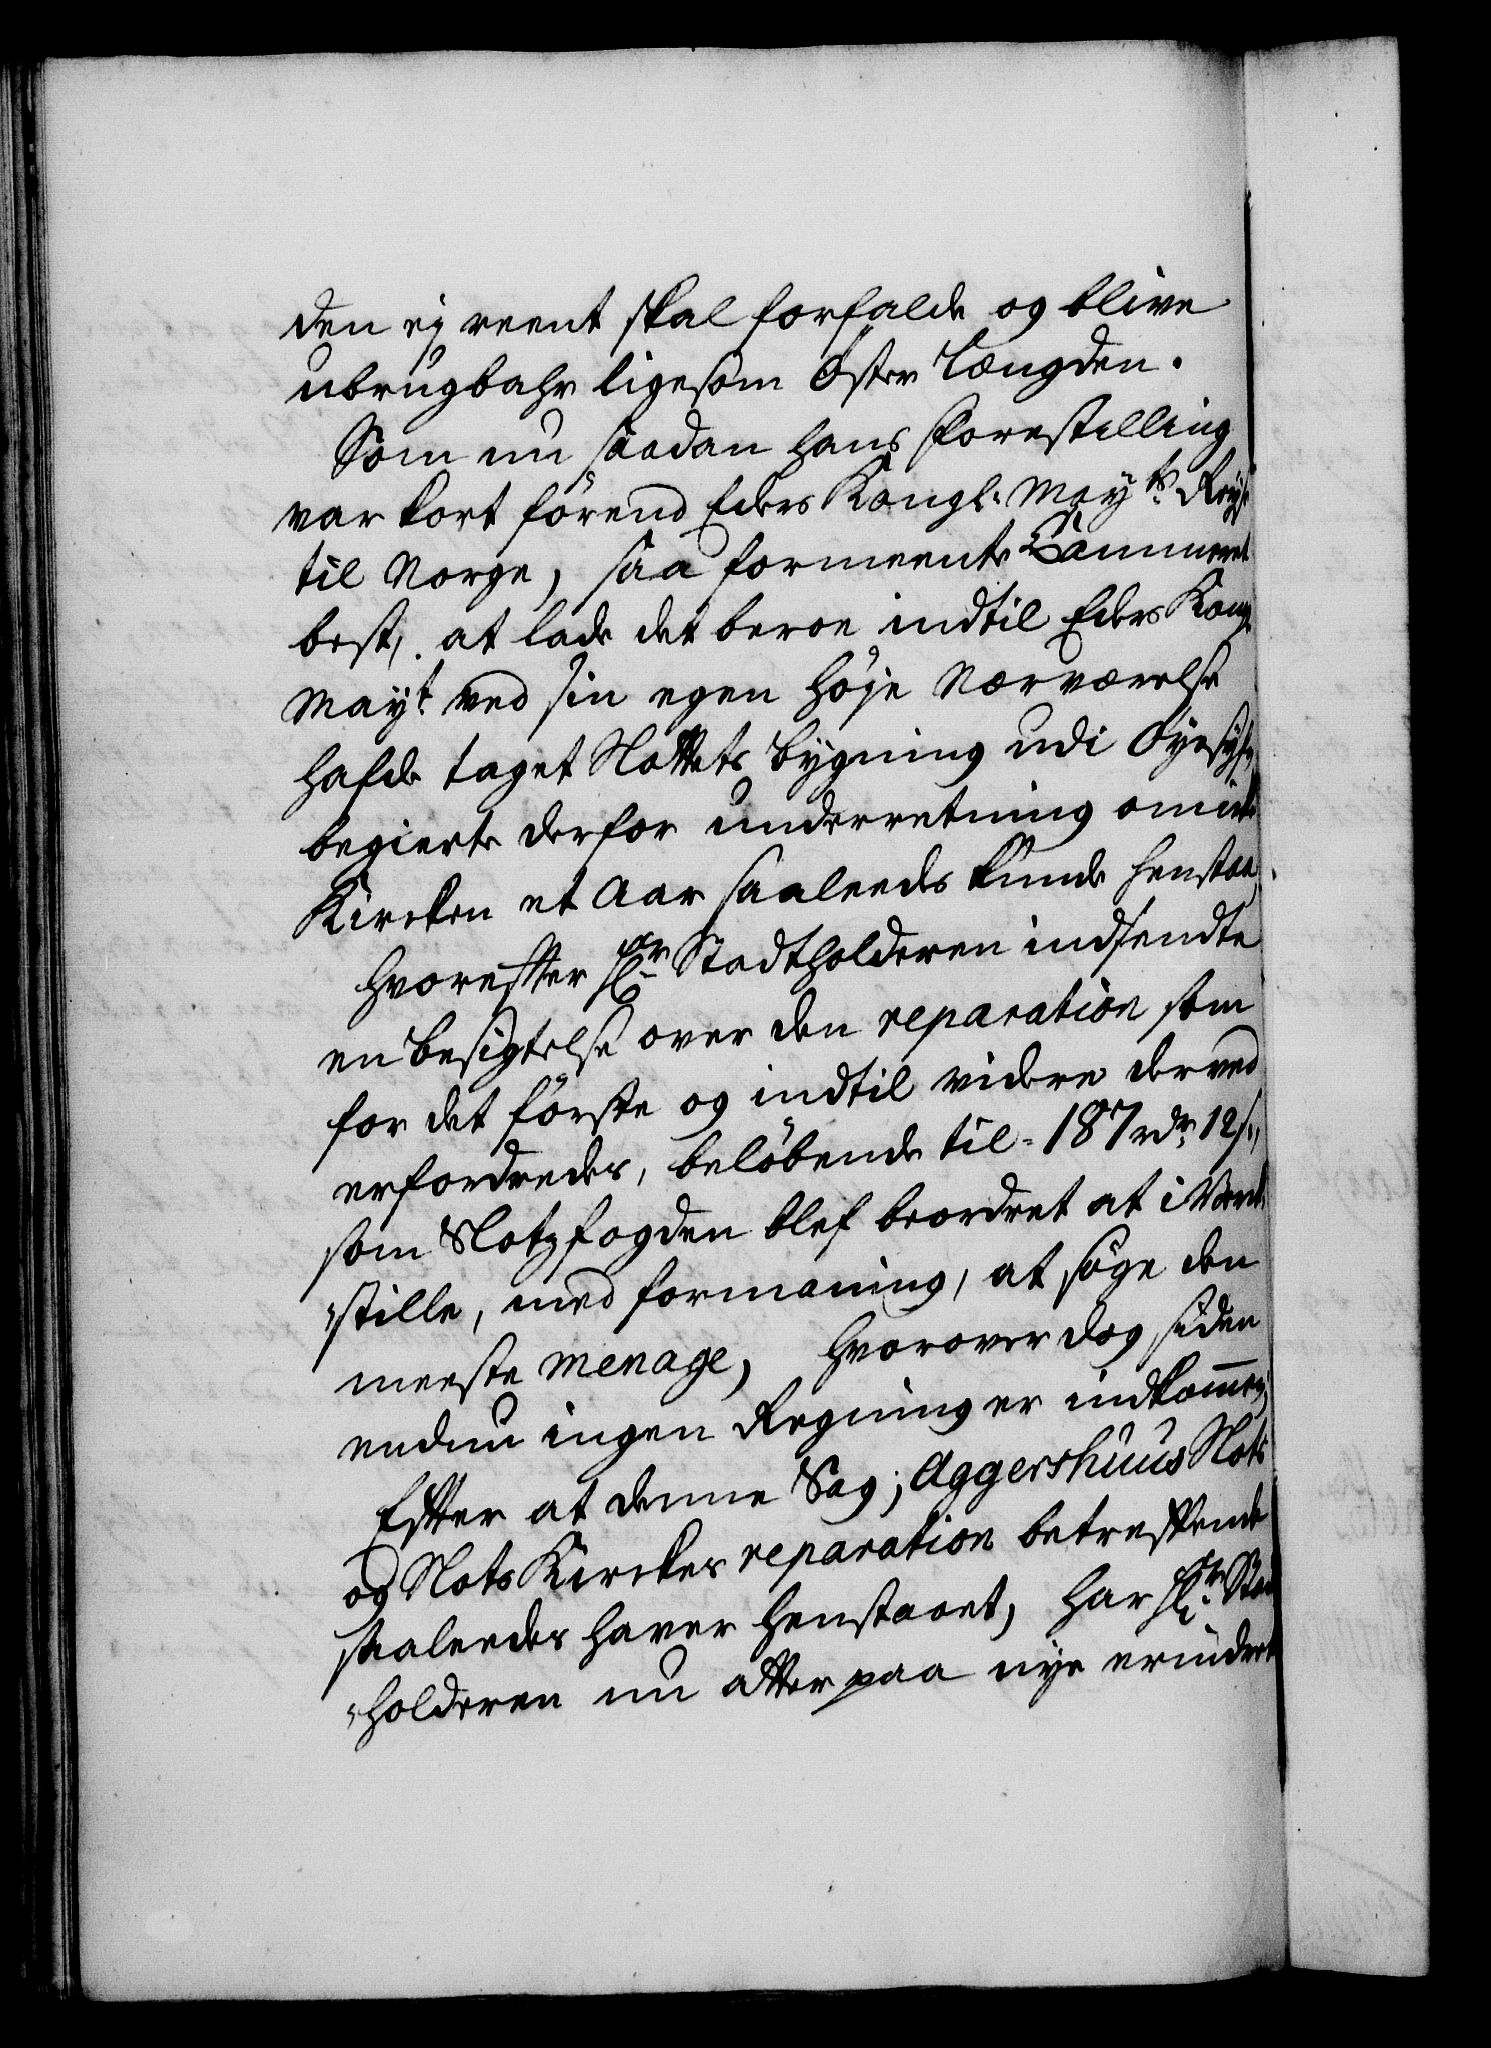 den ej reent skal forfalde og blive
ubrugbahr ligesom Öster Længden.
Som nu saadan hans Forestilling
var kort förend Eders Kongl: Mayts Reyse
til Norge, saa formeente Cammeret
best, at lade det beroe indtil Eders Kongl
Mayt ved sin egen höje Nærværelse
hafde taget Slottets bygning udi Öyesyhn
begierte derfor underretning om icke
Kircken et Aar saaleedes kunde henstaa,
Hvorefter Hr Stadtholderen indsendte
en besigtelse over den reparation som
for det förste og indtil videre derved
erfordredes, belöbende til 187 rdr 12 s,
som Slotzfogden blef beordret at i Verk
stille, med formaning, at söge den
meeste menage, hvorover dog siden
endnu ingen Regning er indkommen,
Efter at denne Sag, Aggershuus Slots
og Slots Kirckes reparation betreffende
saaleedes haver henstaaet, har Hr Stad
holderen nu atter paa nye erindret